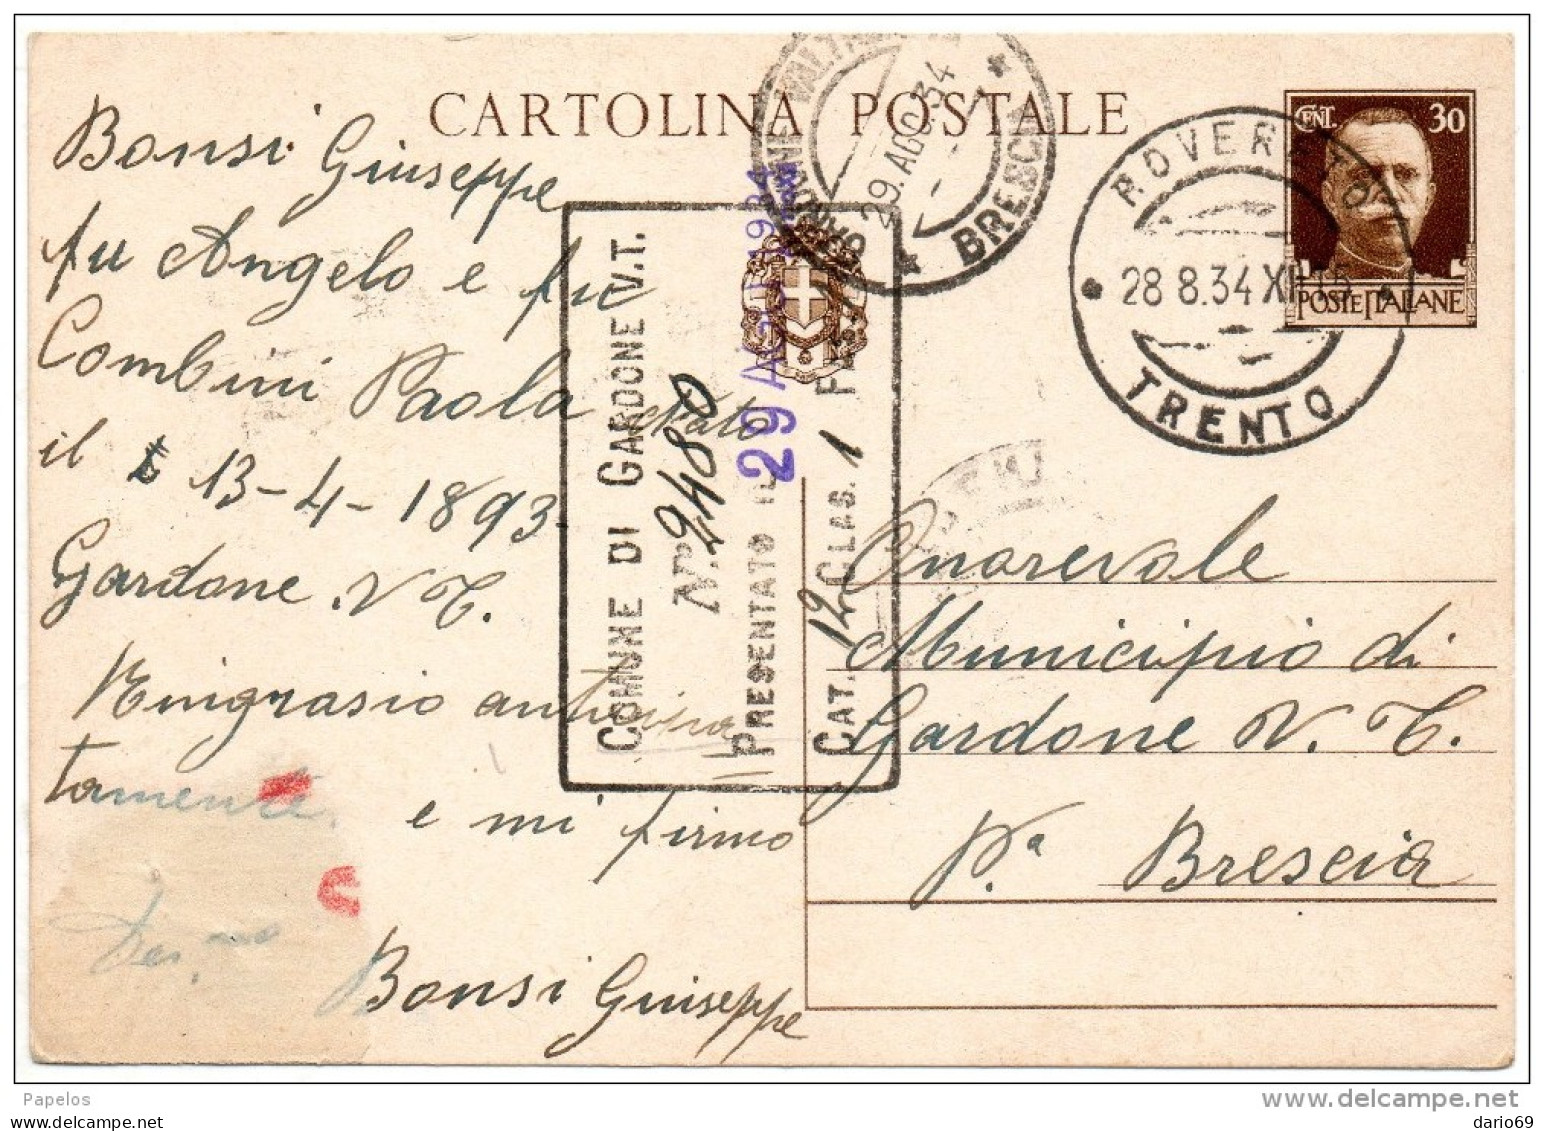 CARTOLINA POSTALE
CENT. 30
POSTE ITALIANE
ROVERETO
28 8.34 XII 15
TRENTO
GARDONE VALTROMPIA
29.AGO.34
BRESCIA
Bonsi Giuseppe
fu Angelo e fu
Combini Paola Nato
il 13-4-1893
Gardone V. T.
Ringrasio
tamente.
e mi firmo
Dev.mo
Bonsi Giuseppe
COMUNE DI GARDONE V.T.
N. 2480
PRESENTATO IL 29 AGO 1934
CAT. 12 CLAS. 1 FASC.
Onorevole
Municipio di
Gardone V. T.
P.a Brescia
Papelos
www.delcampe.net
dario69